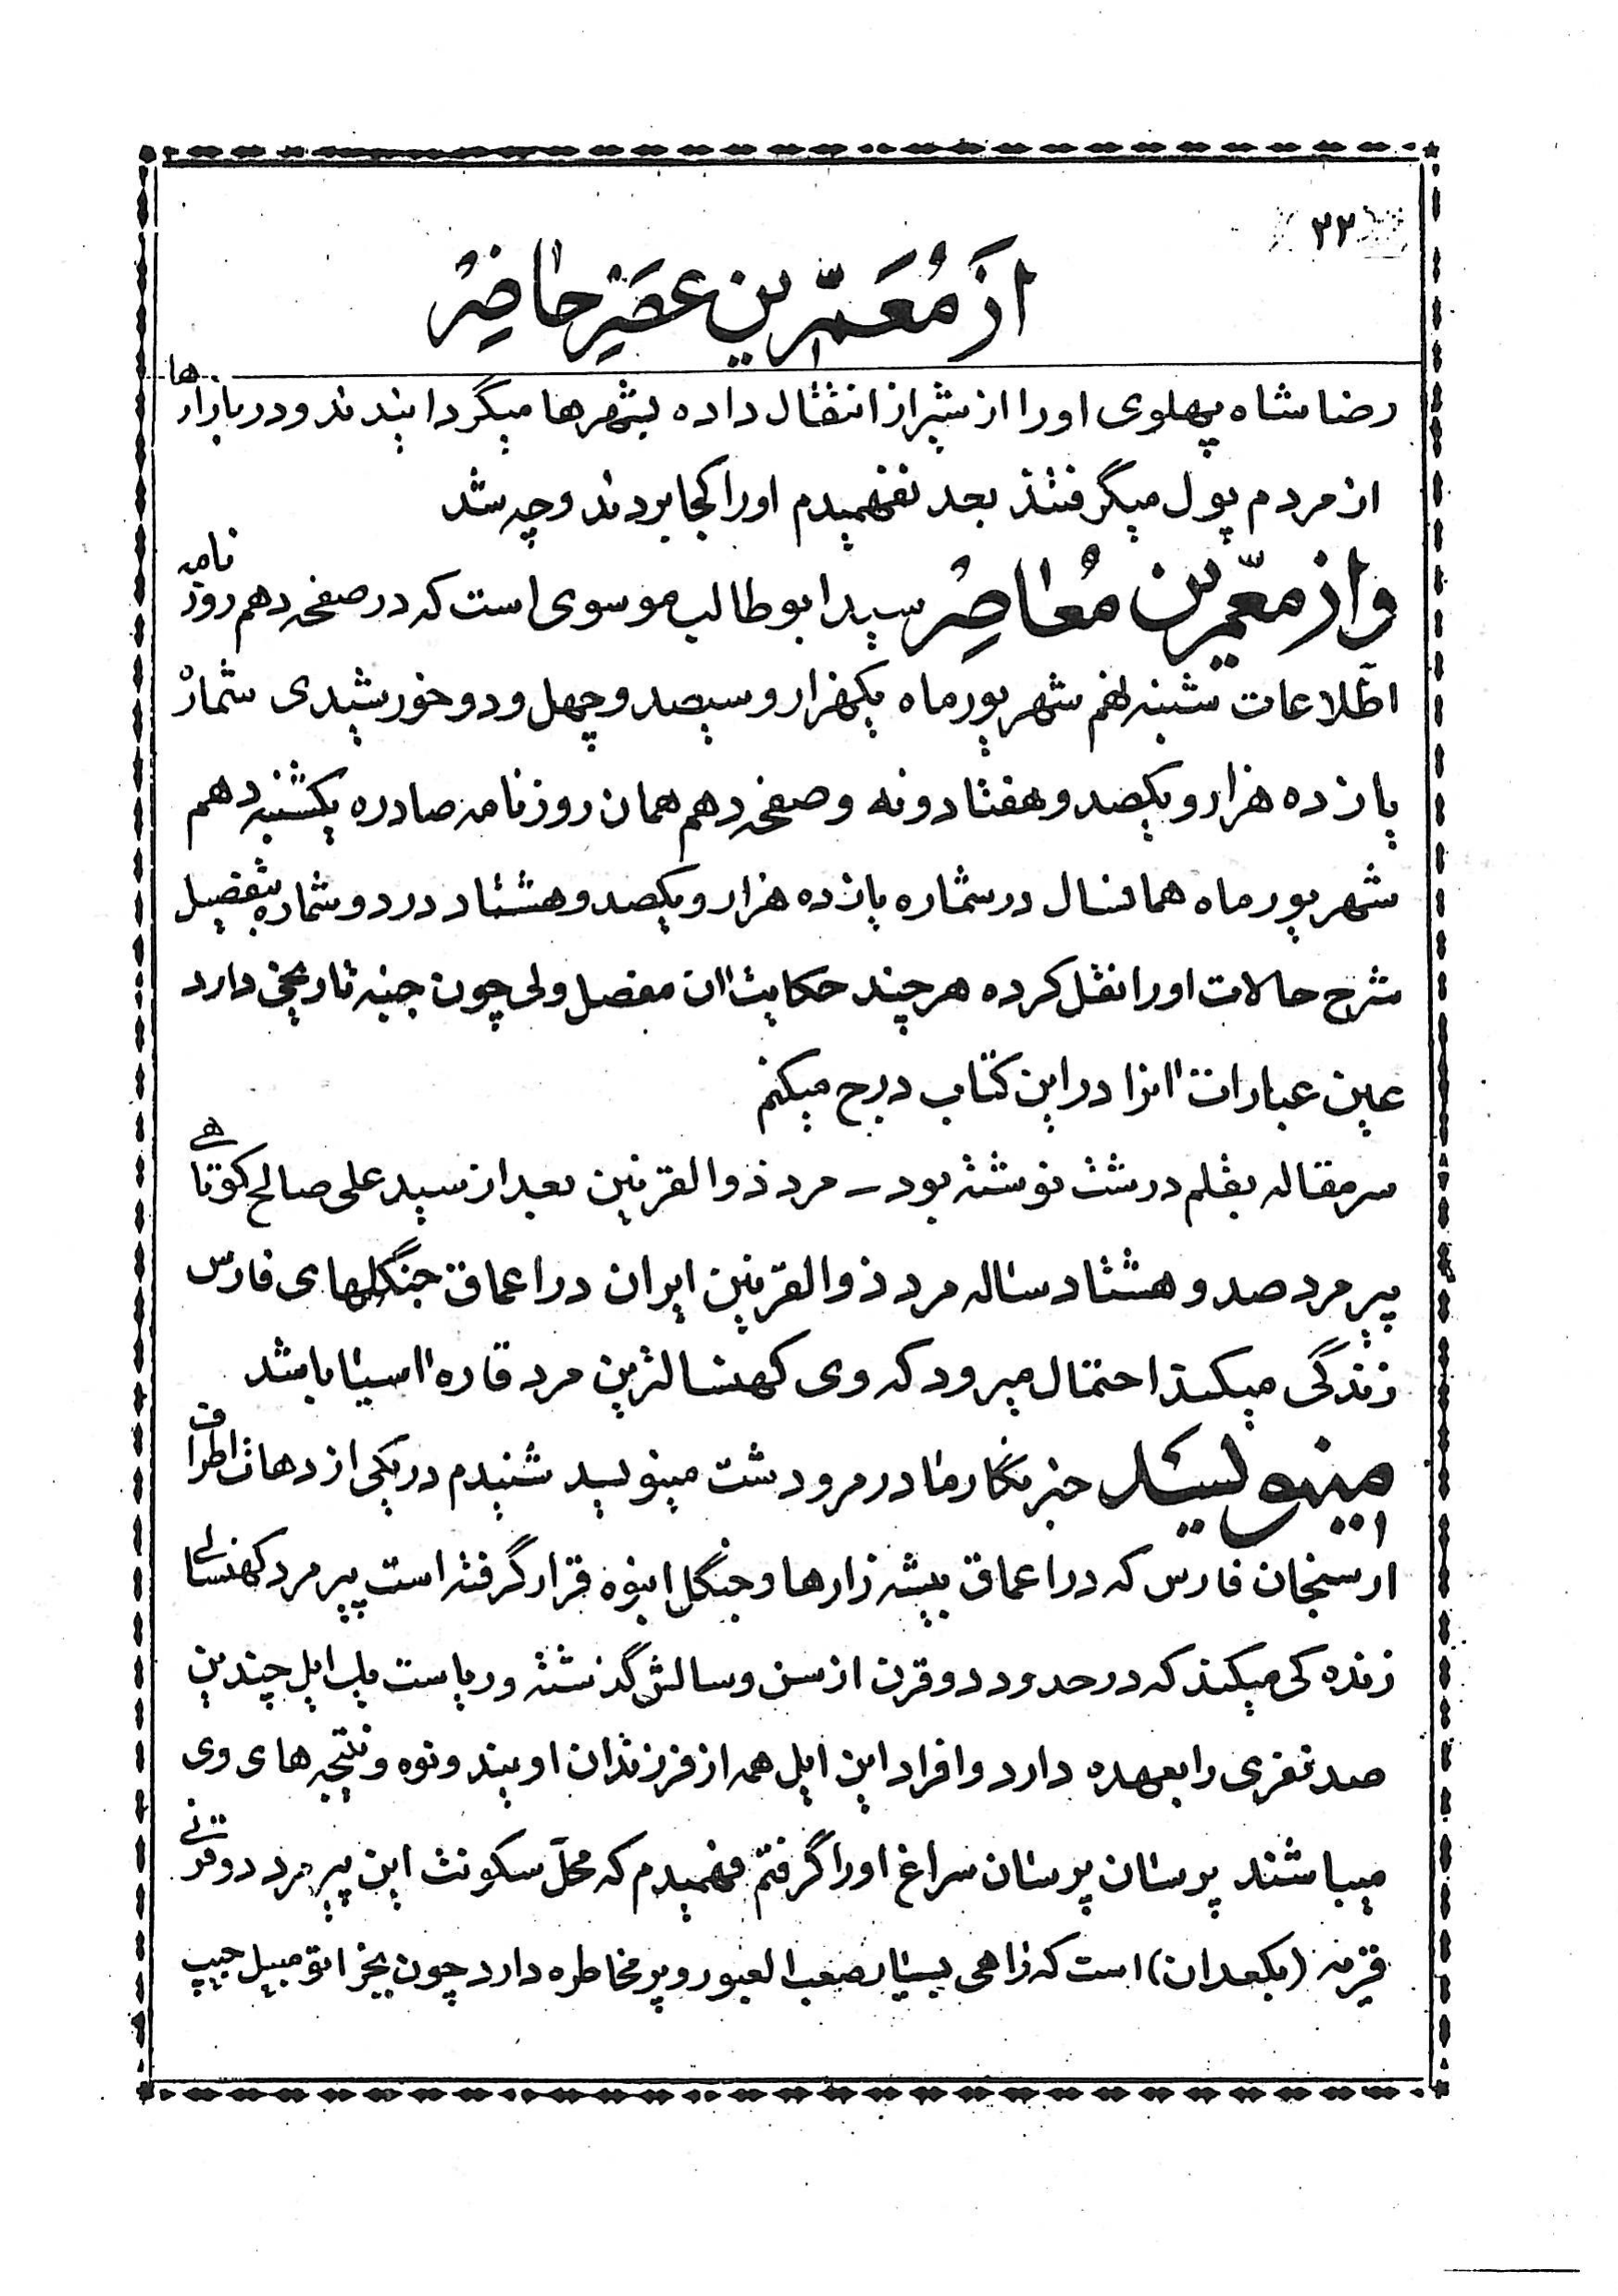 ۲۲
از مُعَمّرین عصرِ حاضِر
رضا شاه پهلوی اورا از شیراز انتقال داده بشهرها میگردانیدند و در بازارها
از مردم پول میگرفتند بعد نفهمیدم اورا کجا بردند و چه شد
واز معمّرین مُعاصِر سید ابوطالب موسوی است که در صفحه دهم روزنامه
اطّلاعات شنبه نهم شهریور ماه یکهزار و سیصد و چهل و دو خورشیدی شماره
پانزده هزار و یکصد و هفتاد و نه و صفحه دهم همان روزنامه صادره یکشنبه دهم
شهریور ماه همانسال در شماره پانزده هزار و یکصد و هشتاد در دو شماره بتفصیل
شرح حالات اورا نقل کرده هر چند حکایت آن مفصل ولی چون جنبه تاریخی دارد
عین عبارات آنرا در این کتاب درج میکنم
سر مقاله بقلم درشت نوشته بود – مرد ذوالقرنین بعد از سید علی صالح کوتاهی
پیر مرد صد و هشتاد ساله مرد ذوالقرنین ایران در اعماق جنگلهای فارس
زندگی میکند احتمال میرود که وی کهنسالترین مرد قاره آسیا باشد
مینویسد خبرنگار ما در مرودشت مینویسد شنیدم در یکی از دهات اطراف
ارسنجان فارس که در اعماق بیشه زارها و جنگل انبوه قرار گرفته است پیر مرد کهنسالی
زنده کی میکند که در حدود دو قرن از سن و سالش گذشته و ریاست یک ایل چندین
صد نفری را بعهده دارد و افراد این ایل همه از فرزندان اویند و نوه و نتیجه های وی
میباشند پرسان پرسان سراغ اورا گرفتم فهمیدم که محلّ سکونت این پیر مرد دو قرنی
قریه (بکعدان) است که راهی بسیار صعب العبور و پر مخاطره دارد چون بجز اتومبیل جیپ